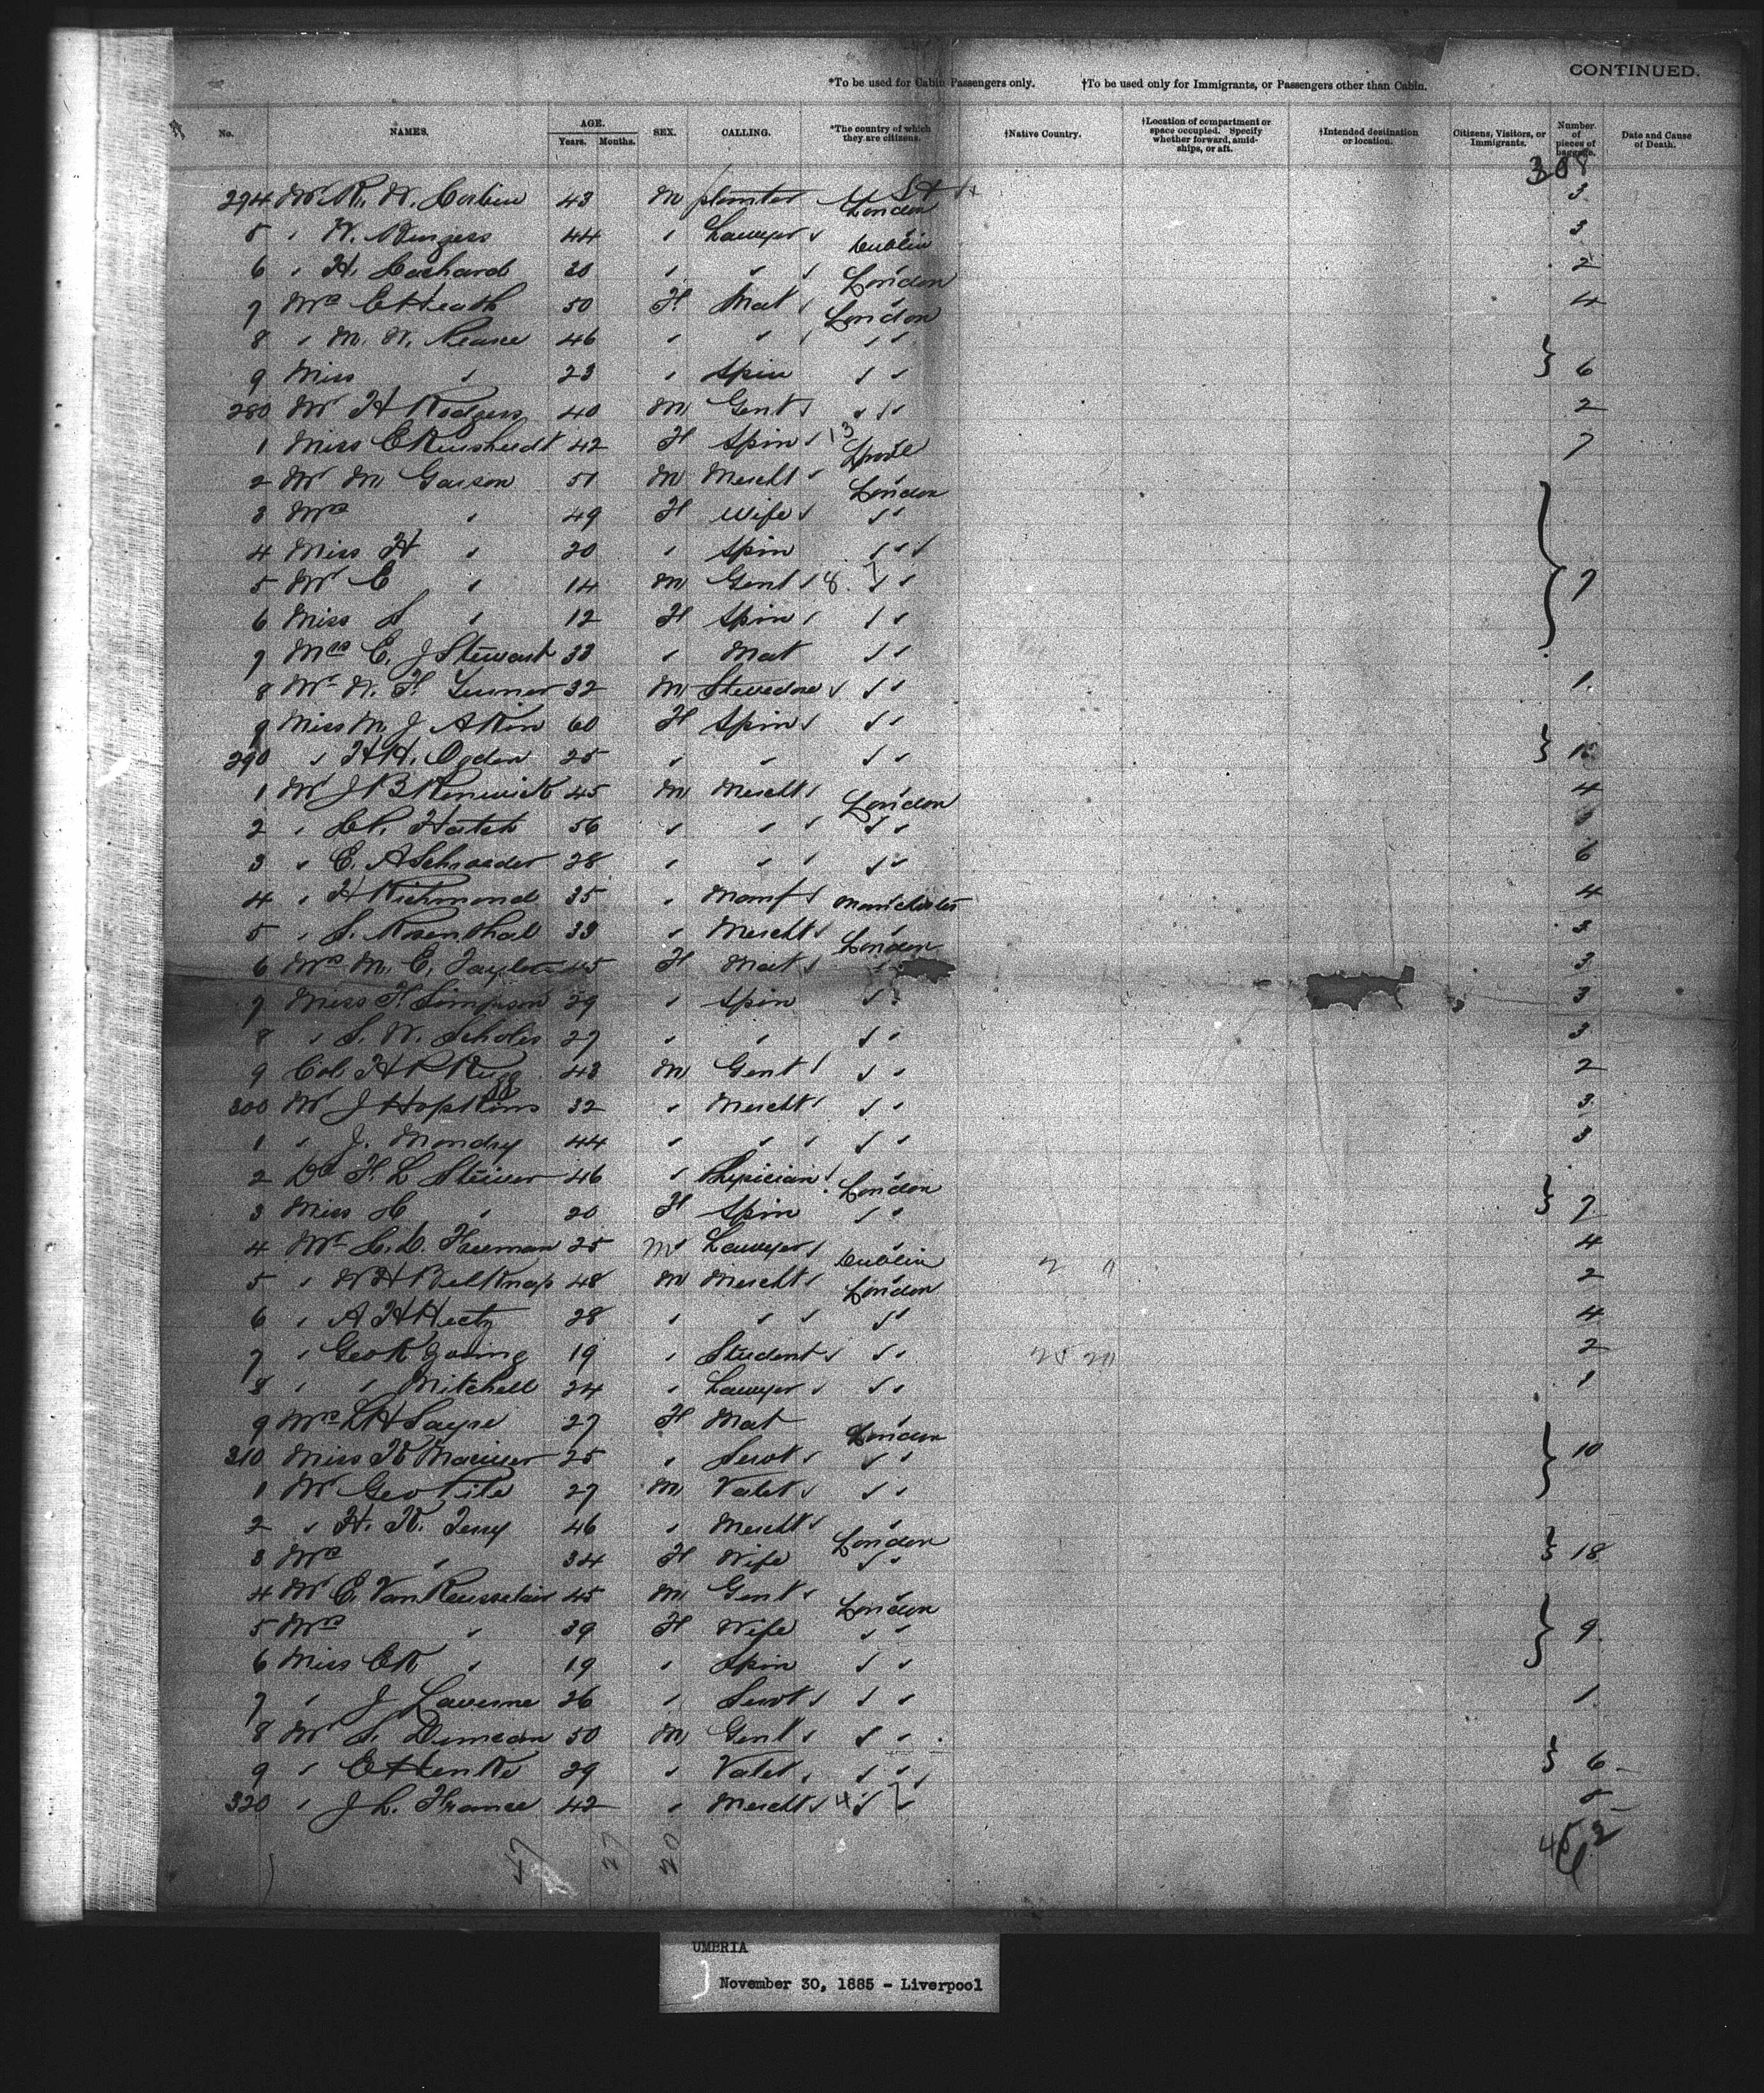 CONTINUED.
*To be used for Cabin Passengers only. †To be used only for Immigrants, or Passengers other than Cabin.
No. NAMES. AGE. Years. Months. SEX. CALLING. *The country of which they are citizens. †Native Country. †Location of compartment or space occupied. Specify whether forward, amidships, or aft. †Intended destination or location. Citizens, Visitors, or Immigrants. Number of pieces of baggage. Date and Cause of Death.
308
294 Mr R. W. Corbin 43 M planter U St London 3
5 " W. Burgess 44 " Lawyer Dublin 3
6 " H. 30 " " London 2
7 Mrs E Heath 50 F Mat London 4
8 " M. W. Pearce 46 " " " "
9 Miss " 23 " Spin " " 6
280 Mr H Rodgers 40 M Gent " " 2
1 Miss E 42 F Spin 13 Lpool 7
2 Mr M Garson 51 M Mercht London
3 Mrs " 49 F Wife " "
4 Miss H " 20 " Spin " "
5 Mr E " 14 M Gent 8 " " 7
6 Miss S " 12 F Spin " "
7 Mrs E. J Stewart 33 " Mat " "
8 Mr W. F. 32 M Stevedore " " 1
9 Miss M. J Akin 60 F Spin " "
290 " H H. Ogden 25 " " " "
1 Mr J B Renwick 45 M Mercht London 4
2 " Hatch 56 " " " "
3 " E. A Schroeder 28 " " " " 6
4 " H Richmond 35 " Manf Manchester 4
5 " S. Rosenthal 33 " Mercht London 3
6 Mrs M. E. Taylor 45 F Mat " 3
7 Miss F. Simpson 29 " Spin " " 3
8 " S. W. Scholes 27 " " " " 3
9 Col H P Rugg 43 M Gent " " 2
300 Mr J Hopkins 32 " Mercht " " 3
1 " J. Mondry 44 " " " " 3
2 Dr F. L 46 " Physician London
3 Miss C " 20 F Spin " " 7
4 Mr C. D. 25 M Lawyer Dublin 4
5 " W H Belknap 48 M Mercht London 2
6 " A H 28 " " " " 4
7 " Geo R. Young 19 " Student " " 2
8 " " Mitchell 24 " Lawyer " " 1
9 Mrs L H Sayre 27 F Mat London
310 Miss K 25 " Servt " " 10
1 Mr Geo Pile 27 M Valet " "
2 " H. K. Terry 46 " Mercht London
3 Mrs " 34 F Wife " " 18
4 Mr E. Van Rensselair 45 M Gent London
5 Mrs " 39 F Wife " " 9
6 Miss E K " 19 " Spin " "
7 " J Laverne 26 " Servt " " 1
8 Mr S. Duncan 50 M Gent " "
9 " E Henke 29 " Valet " " 6
320 " J L. France 42 " Mercht 4 " "
UMBRIA
November 30, 1885 - Liverpool